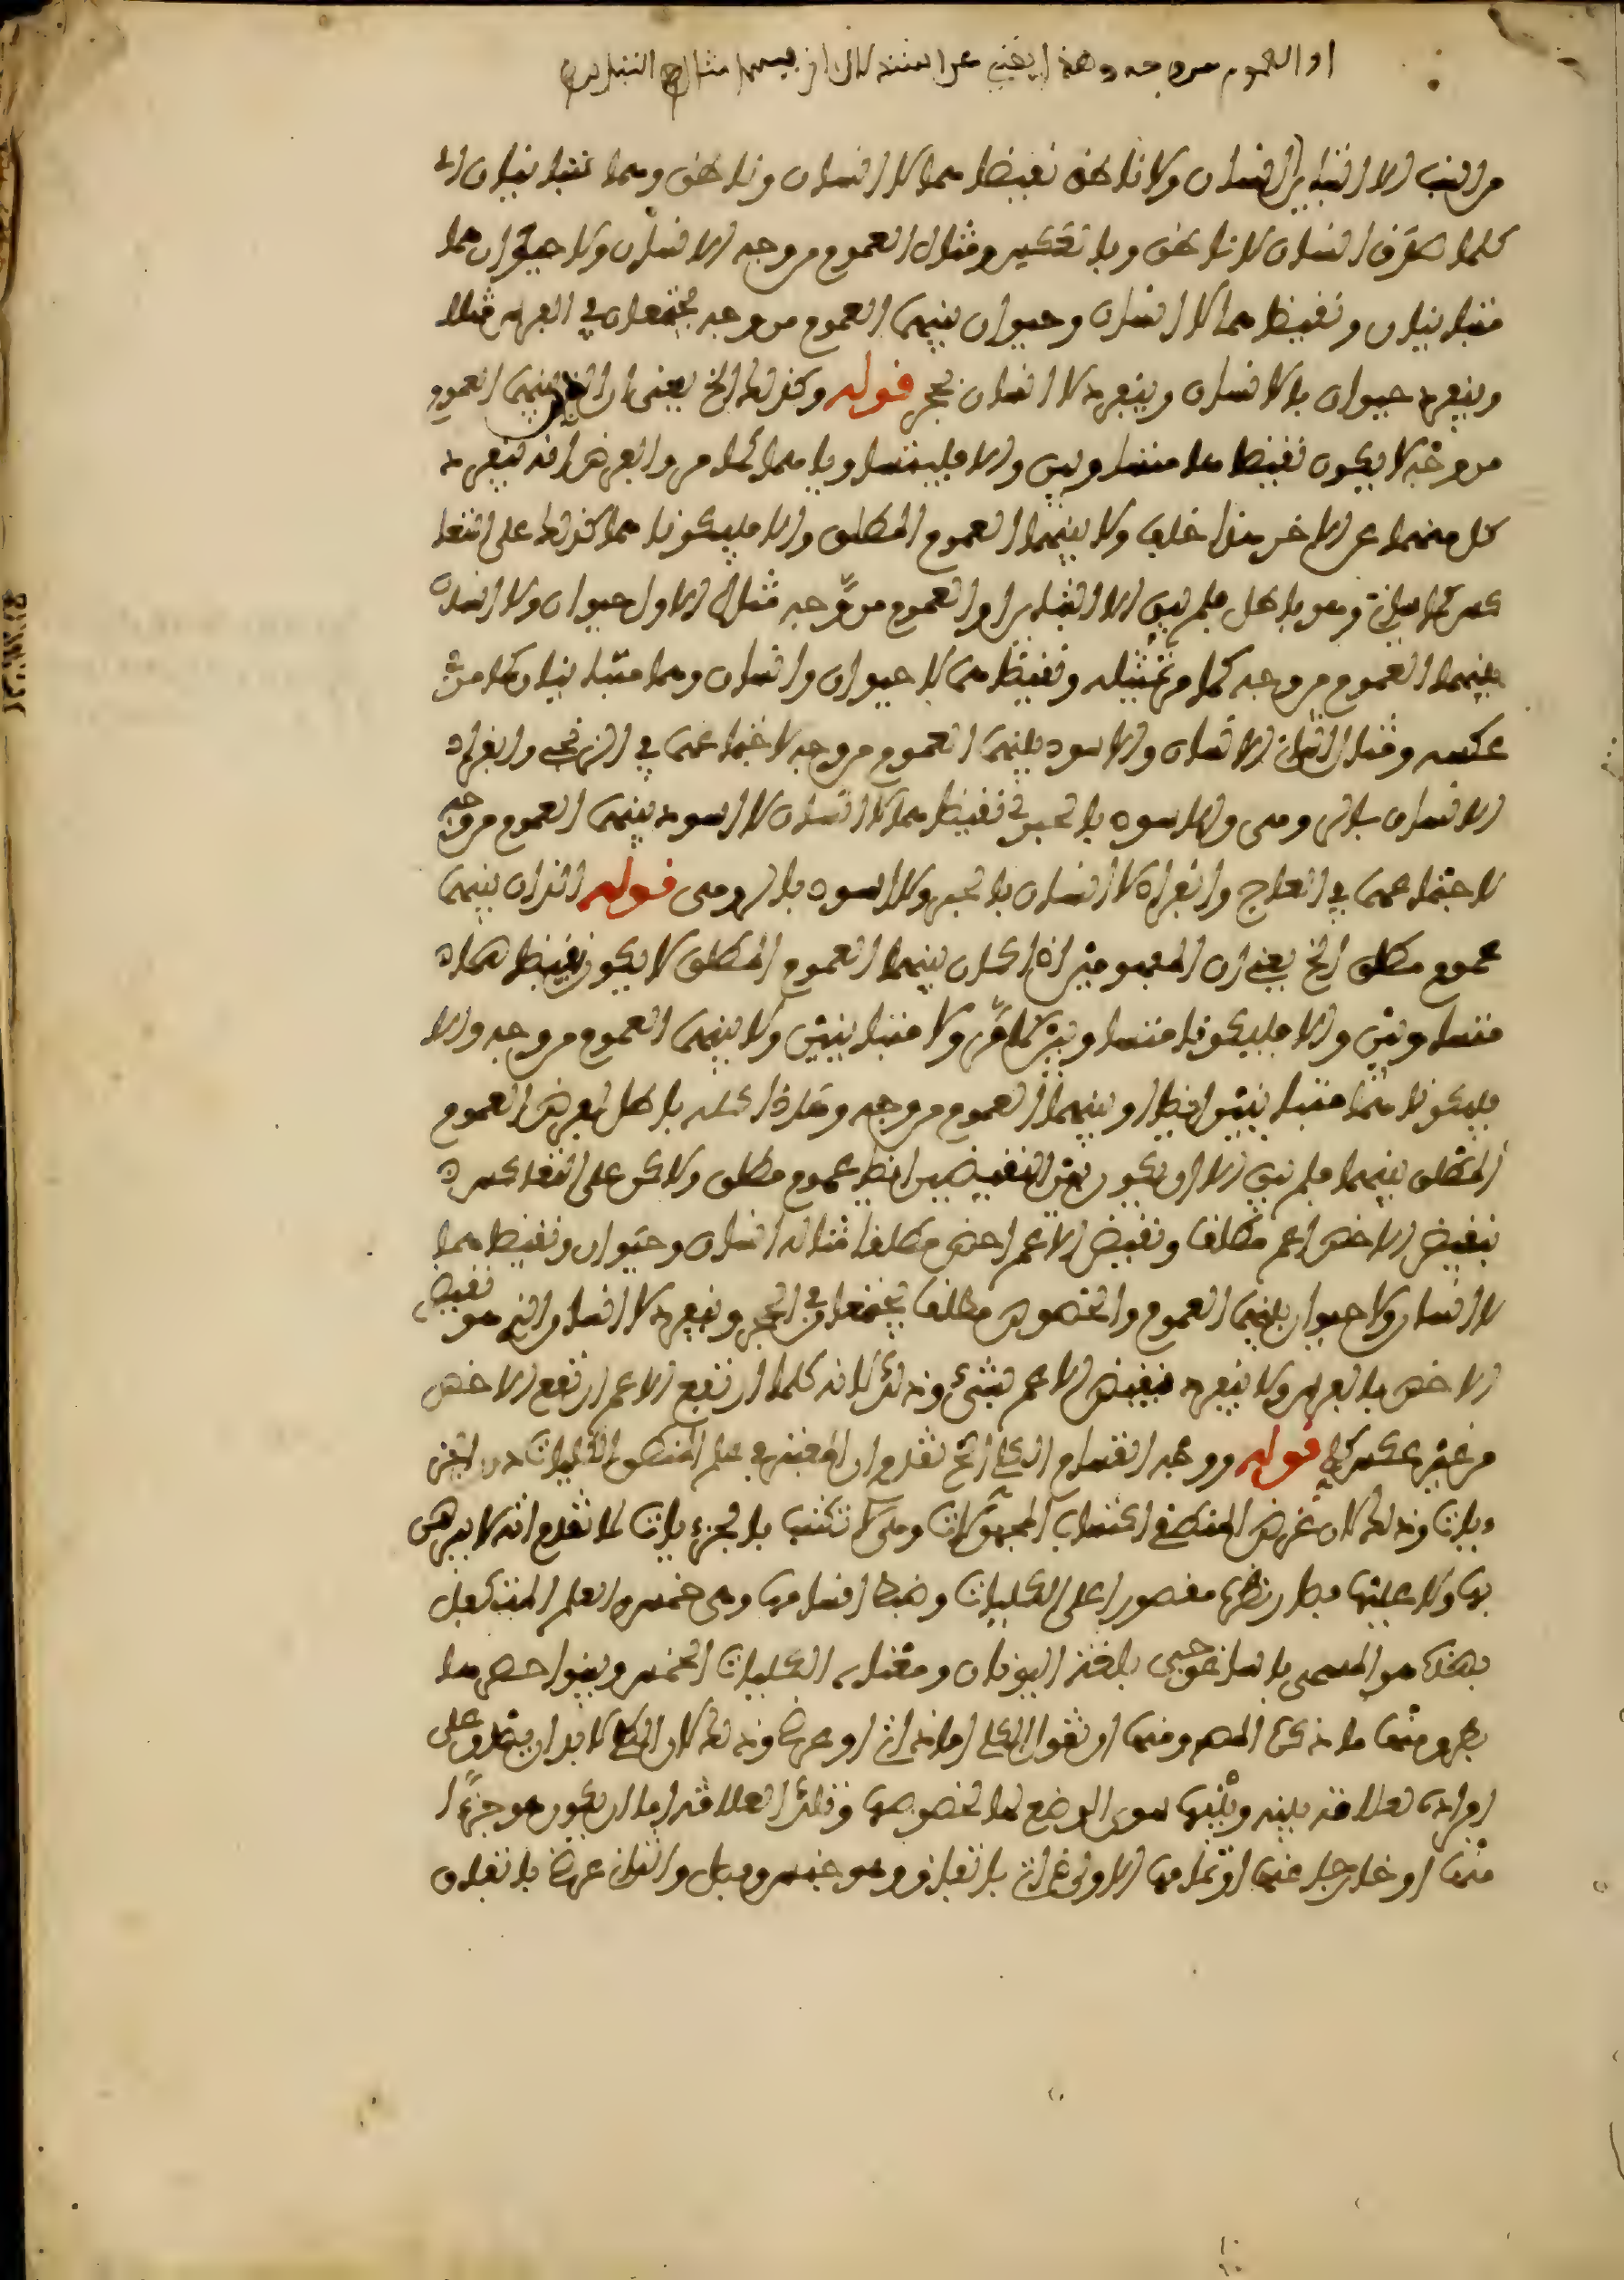 او العموم من وجه وهذا يغني عن
من النسب الا التباين انسان ولا ناطق نقيضاهما لا انسان وناطق وهما متباينان اذ
كلما صدق انسان لا ناطق وبالعكس ومثال العموم من وجه الانسان ولا حيوان هما
متباينان ونقيضاهما لا انسان وحيوان بينهما العموم من وجه يجتمعان في الفرس مثلا
وينفرد حيوان بالانسان وينفرد لا انسان بحجر قوله وكذلك الخ يعني ان بينهما العموم
من وجه لا يكون نقيضاهما متساويين والا فليتساويا هما كما مر والفرض انه ينفرد
كل منهما عن الاخر هذا خلف ولا بينهما العموم المطلق والا فليكونا هما كذلك على التعا
كس كما سياتي وهو باطل فلم يبق الا التباين او العموم من وجه مثال الاول حيوان ولا انسان
بينهما العموم من وجه كما مر تمثيله ونقيضاهما لا حيوان وانسان وهما متباينان كما مر في
عكسه ومثال الثاني الانسان والاسود بينهما العموم من وجه لاجتماعهما في الزنجي وانفراد
الانسان بالرومي والاسود بالحبر نقيضاهما لا انسان لا اسود بينهما العموم من وجه
لاجتماعهما في العاج وانفراد لا انسان بالحبر ولا اسود بالرومي قوله اللذان بينهما
عموم مطلق الخ يعني ان المفهومين اذا كان بينهما العموم المطلق لا يكون نقيضاهما
متساويين والا فليكونا متساويين كما مر ولا متباينين ولا بينهما العموم من وجه والا
فليكونا هما متباينين ايضا او بينهما العموم من وجه وهذا كله باطل لفرض العموم
المطلق بينهما فلم يبق الا ان يكون بين النقيضين ايضا عموم مطلق ولاكن على التعاكس
فنقيض الاخص اعم مطلقا ونقيض الاعم اخص مطلقا مثاله انسان وحيوان ونقيضاهما
لا انسان ولا حيوان بينهما العموم والخصوص مطلقا يجتمعان في الحجر وينفرد لا انسان الذي هو نقيض
الاخص بالفرس ولا ينفرد نقيض الاعم بشيء وذلك لانه كلما ارتفع الاعم ارتفع الاخص
من غير عكس كلي قوله ووجه انقسام الكلي الخ تقدم ان المعتبر في علم المنطق الكليات دون الجز
ءيات وذلك لان غرض المنطقي اكتساب المجهولات وهي لا تكتسب بالجزءيات لما تقدم انه لا يبرهن
بها ولا عليها فصار نظره مقصورا على الكليات وضبط اقسامها وهي خمس والعلم المتكفل
بهذا هو المسمى بايساغوجي بلغة اليونان ومعناه الكليات الخمس وبينوا حصرها
بطرق منها ما ذكره المص ومنها ان تقول الكلي اما ذاتي او عرضي وذلك لان الكلي لا بد ان يصدق على
افراد لعلاقة بينه وبينها سوى الوضع لها لخصوصها وتلك العلاقة اما ان يكون هو جزءا
منها او خارجا عنها او تمامها الاول ذاتي باتفاق وهو جنس وفصل والثاني عرضي باتفاق